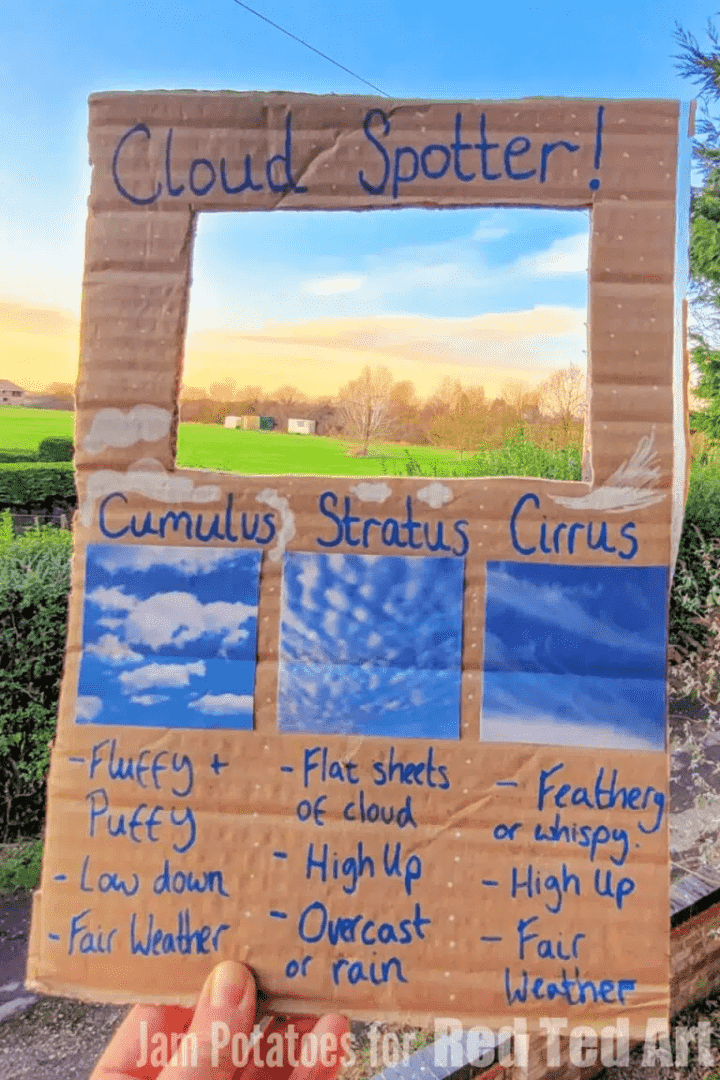 Cloud Spotter!
Cumulus Stratus Cirrus
- Fluffy +
Puffy
- Low down
- Fair Weather
- Flat sheets
of cloud
- High Up
- Overcast
or rain
- Feathery
or whispy.
- High Up
- Fair
Weather
Jam Potatoes for Red Ted Art